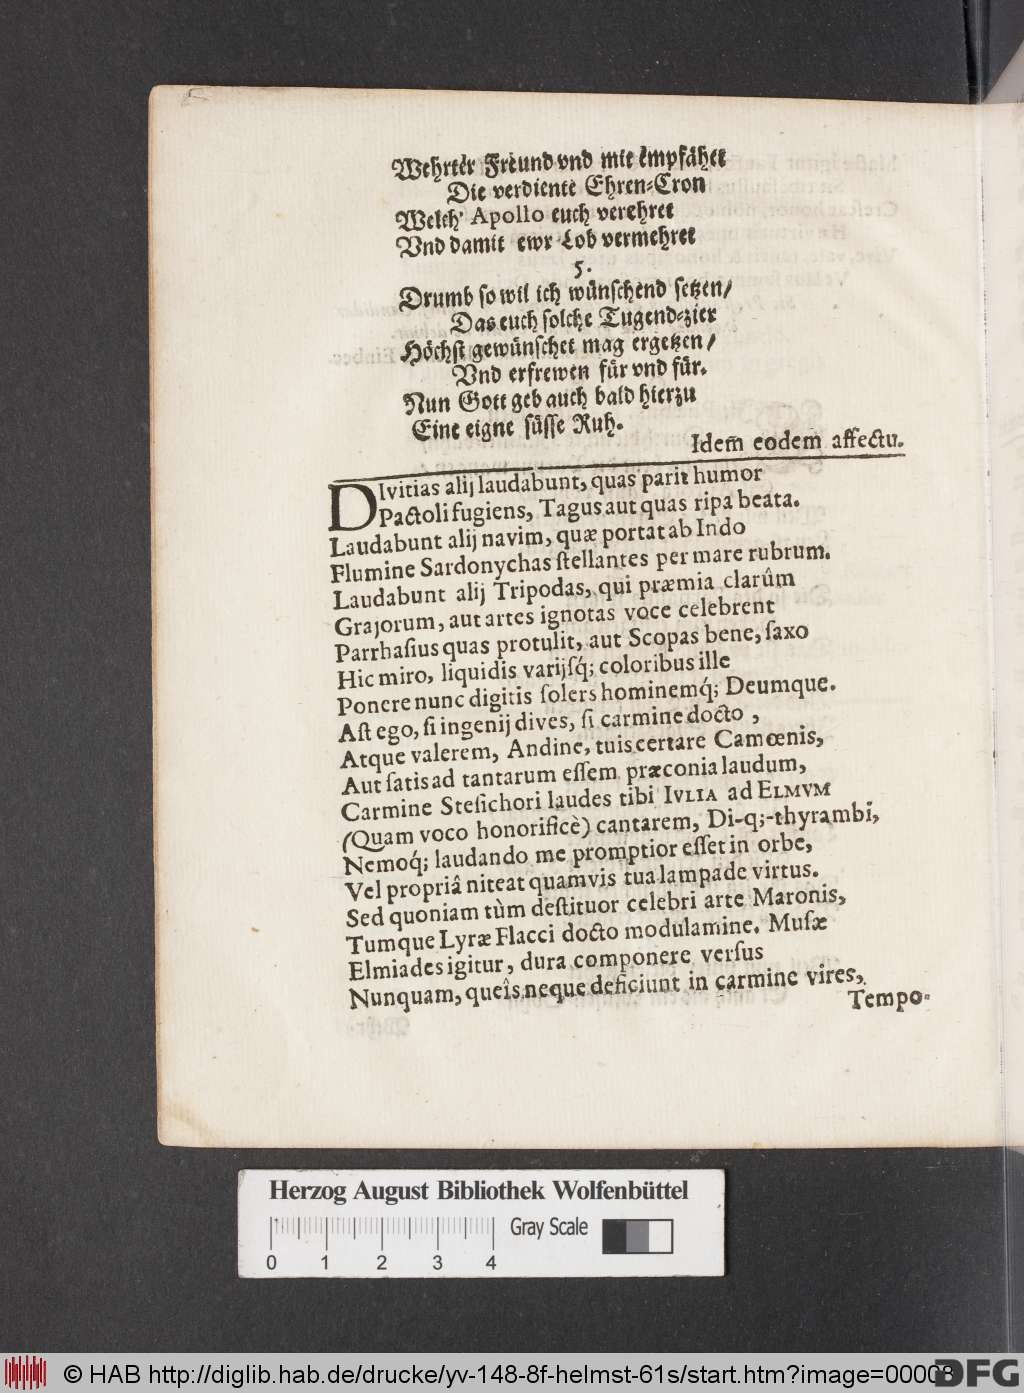 Wehrter Freund vnd mit empfähet
Die verdiente Ehren-Cron
Welch' Apollo euch verehret
Vnd damit ewr Lob vermehret
5.
Drumb so wil ich wünschend setzen/
Das euch solche Tugend-zier
Höchst gewünschet mag ergetzen/
Vnd erfrewen für vnd für.
Nun Gott geb auch bald hierzu
Eine eigne süsse Ruh.
Idem̃ eodem affectu.
DIvitias alij laudabunt, quas parit humor
Pactoli fugiens, Tagus aut quas ripa beata.
Laudabunt alij navim, quæ portat ab Indo
Flumine Sardonychas ſtellantes per mare rubrum.
Laudabunt alij Tripodas, qui præmia clarûm
Grajorum, aut artes ignotas voce celebrent
Parrhaſius quas protulit, aut Scopas bene, ſaxo
Hic miro, liquidis varijſq́; coloribus ille
Ponere nunc digitis ſolers hominemq́; Deumque.
Aſt ego, ſi ingenij dives, ſi carmine docto,
Atque valerem, Andine, tuis certare Camœnis,
Aut ſatis ad tantarum eſſem præconia laudum,
Carmine Steſichori laudes tibi IVLIA ad ELMVM
(Quam voco honorificè) cantarem, Di-q;-thyrambi,
Nemoq́; laudando me promptior eſſet in orbe,
Vel propriâ niteat quamvis tua lampade virtus.
Sed quoniam tùm deſtituor celebri arte Maronis,
Tumque Lyræ Flacci docto modulamine. Muſæ
Elmiades igitur, dura componere verſus
Nunquam, queîs neque deficiunt in carmine vires,
Tempo-
Herzog August Bibliothek Wolfenbüttel
Gray Scale
0 1 2 3 4
© HAB http://diglib.hab.de/drucke/yv-148-8f-helmst-61s/start.htm?image=00008
DFG